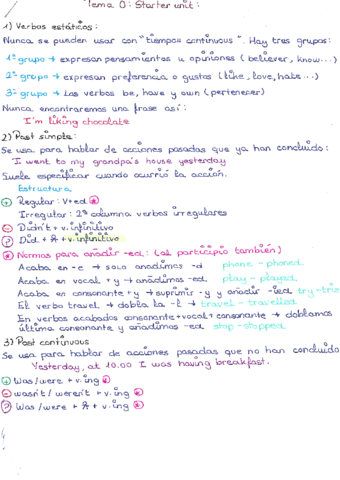 Tema 0: Starter unit:
1) Verbos estáticos:
Nunca se pueden usar con "tiempos continuous". Hay tres grupos:
1º grupo → expresan pensamientos u opiniones (believer, know...)
2º grupo → expresan preferencia o gustos (like, love, hate...)
3º grupo → Los verbos be, have y own (pertenecer)
Nunca encontraremos una frase así:
I'm liking chocolate
2) Past simple:
Se usa para hablar de acciones pasadas que ya han concluido:
I went to my grandpa's house yesterday
Suele especificar cuando ocurrió la acción.
Estructura
+ Regular: V+ed *
Irregular: 2ª columna verbos irregulares
- Didn't + v. infinitivo
? Did + A + v. infinitivo
* Normas para añadir -ed: (al participio también)
Acaba en -e → solo añadimos -d phone - phoned
Acaba en vocal + y → añadimos -ed play - played
Acaba en consonante + y → suprimir -y y añadir -ied try-tried
El verbo travel → dobla la -l → travel - travelled
En verbos acabados consonante + vocal + consonante → doblamos
última consonante y añadimos -ed stop - stopped
3) Past continuous
Se usa para hablar de acciones pasadas que no han concluido
Yesterday, at 10.00 I was having breakfast.
+ Was/were + v. ing *
- wasn't/weren't + v. ing *
? Was/were + A + v. ing *